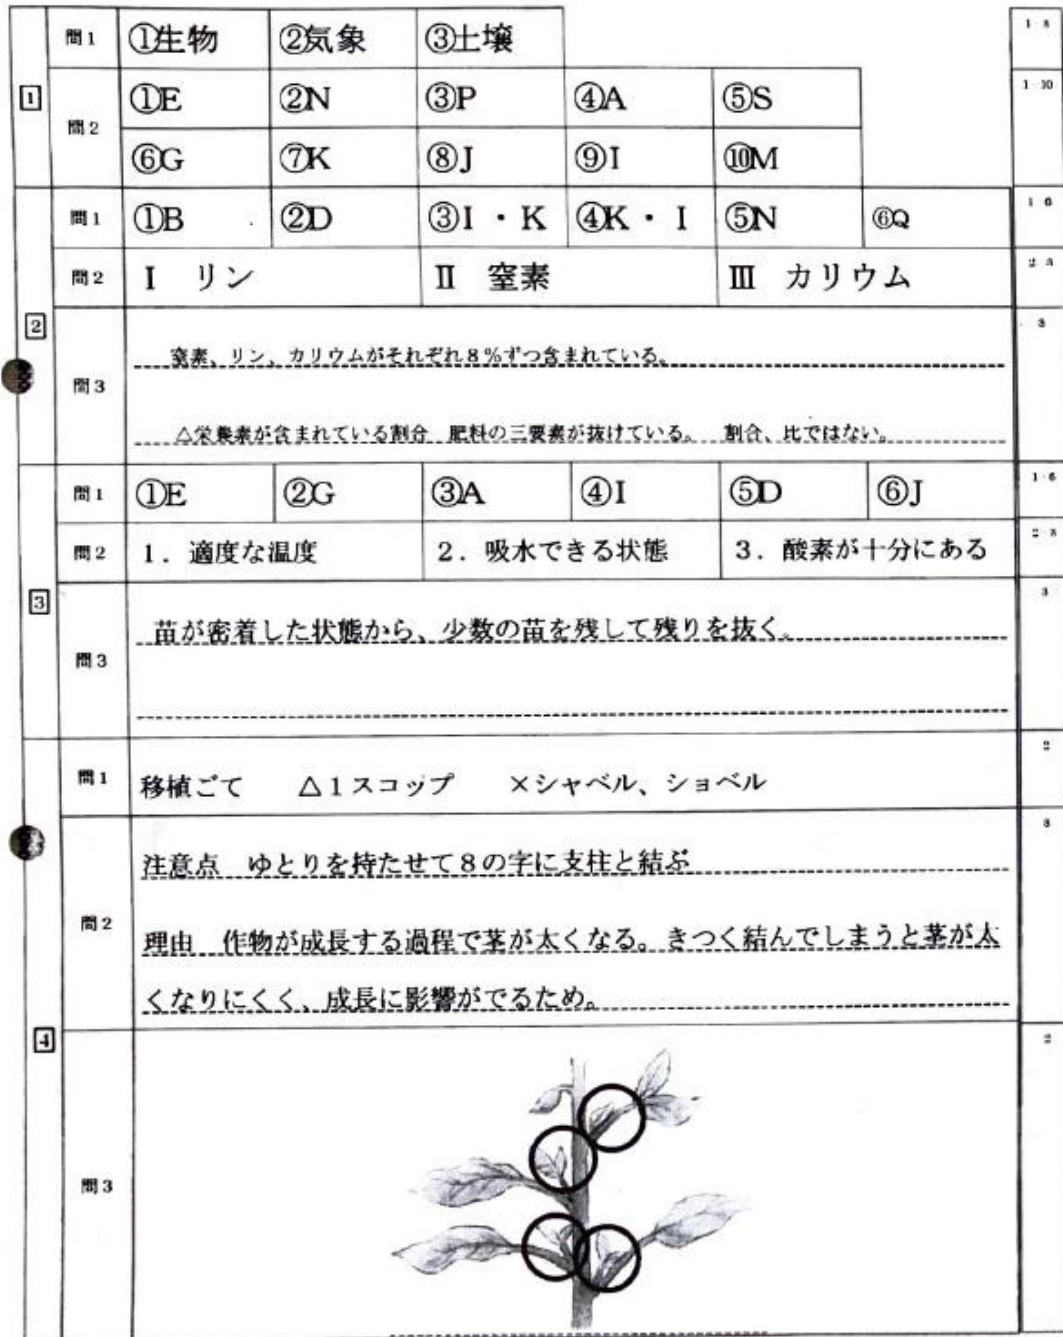 1
問1 ①生物 ②気象 ③土壌 1·3
問2 ①E ②N ③P ④A ⑤S 1·10
⑥G ⑦K ⑧J ⑨I ⑩M
2
問1 ①B ②D ③I・K ④K・I ⑤N ⑥Q 1·6
問2 Ⅰ リン Ⅱ 窒素 Ⅲ カリウム 2·3
問3 窒素、リン、カリウムがそれぞれ8%ずつ含まれている。 3
△栄養素が含まれている割合 肥料の三要素が抜けている。 割合、比ではない。
3
問1 ①E ②G ③A ④I ⑤D ⑥J 1·6
問2 1.適度な温度 2.吸水できる状態 3.酸素が十分にある 2·3
問3 苗が密着した状態から、少数の苗を残して残りを抜く。 3
4
問1 移植ごて △1スコップ ×シャベル、ショベル 2
問2 注意点 ゆとりを持たせて8の字に支柱と結ぶ 3
理由 作物が成長する過程で茎が太くなる。きつく結んでしまうと茎が太
くなりにくく、成長に影響がでるため。
問3 2